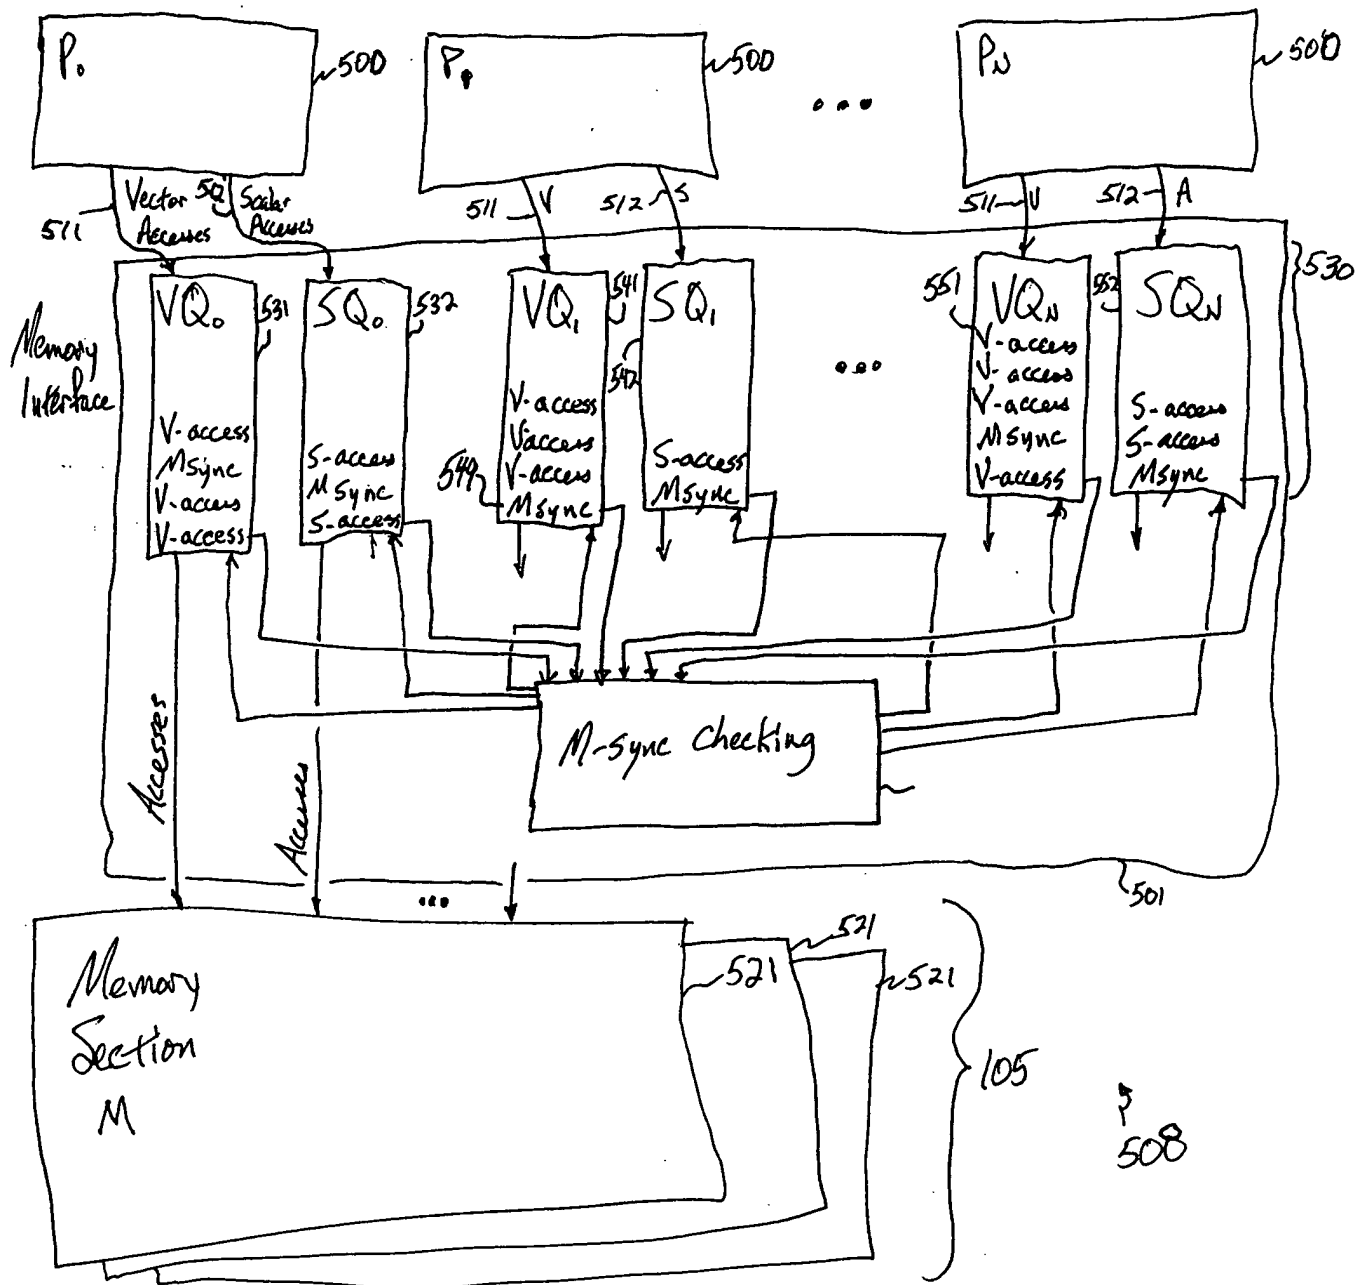 P₀
500
P₁
500
...
PN
500
511
Vector
Accesses
512
Scalar
Accesses
511
V
512
S
511
V
512
A
530
Memory
Interface
VQ₀
531
V-access
MSync
V-access
V-access
SQ₀
532
S-access
MSync
S-access
VQ₁
541
V-access
V-access
V-access
MSync
544
SQ₁
542
S-access
MSync
...
551
VQN
V-access
V-access
V-access
MSync
V-access
552
SQN
S-access
S-access
MSync
Accesses
Accesses
M-sync Checking
501
...
Memory
Section
M
521
521
521
105
508